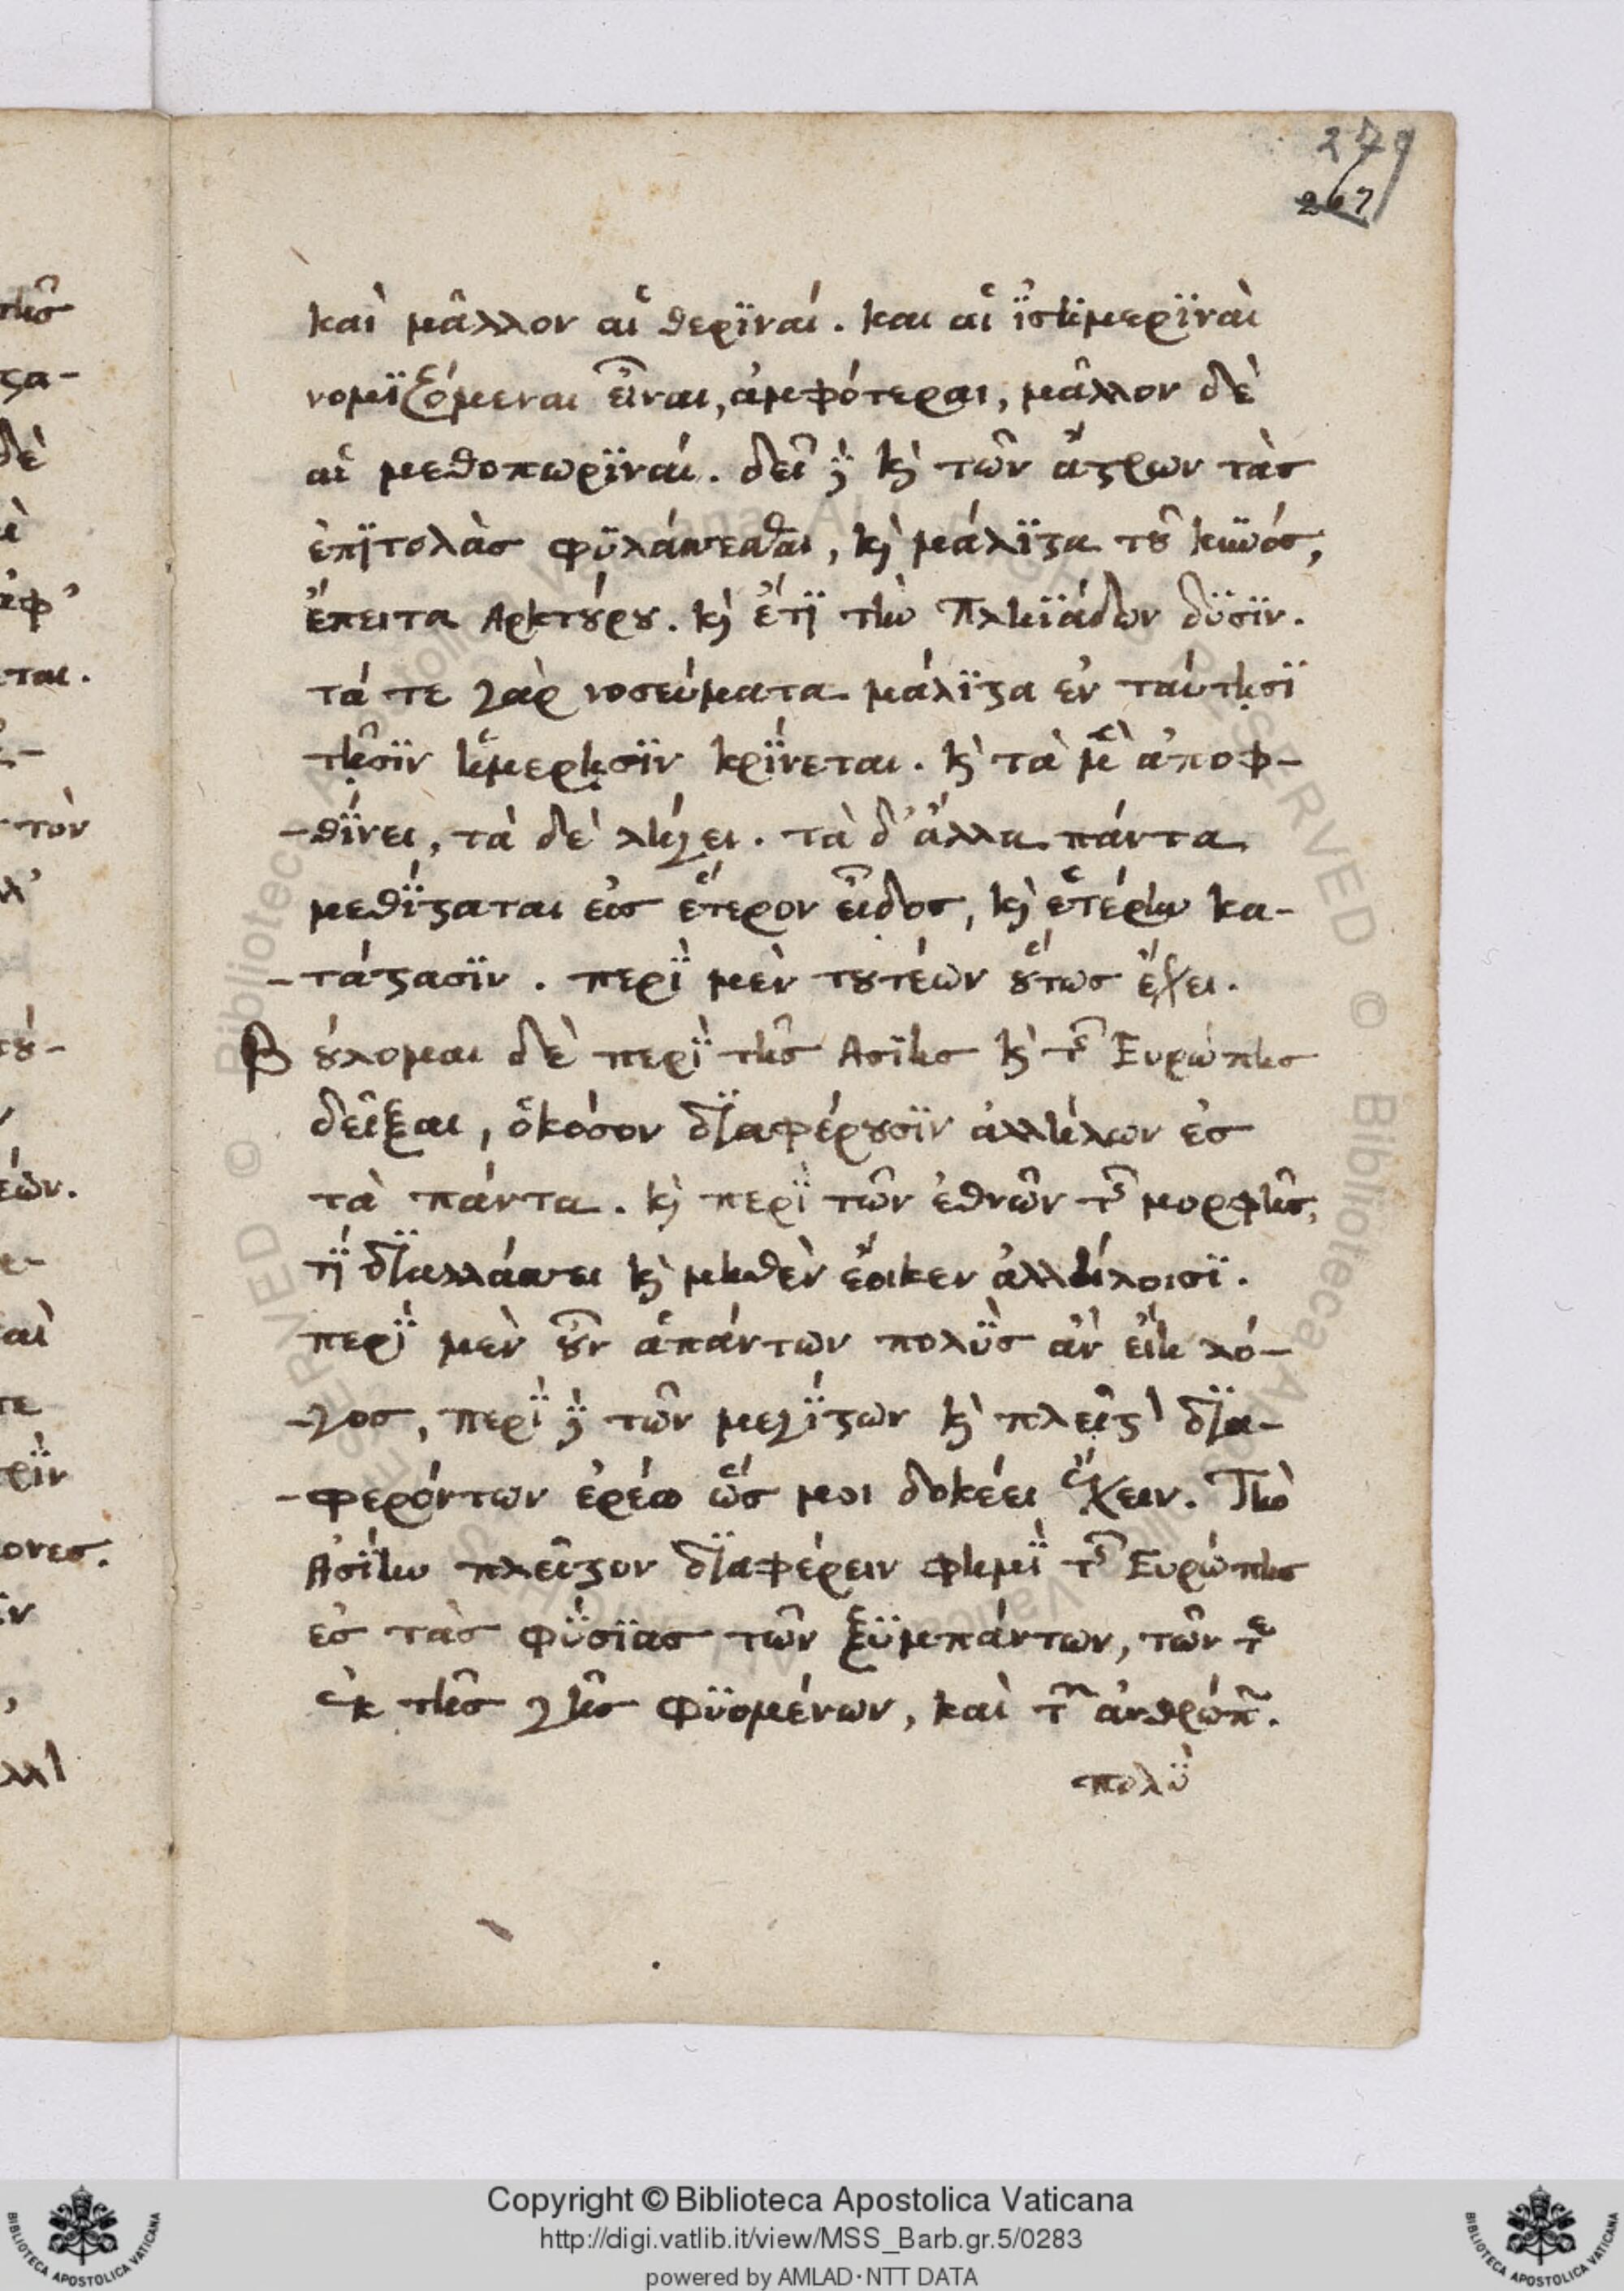 279
267
καὶ μᾶλλον αἱ θερϊναί. και αἱ ἰ̈σημερϊναὶ
νομϊζόμεναι εἶναι, ἀμφότεραι, μᾶλλον δὲ
αἱ μεθοπωρϊναί. δεῖ δὲ κὶ τῶν ἄϛρων τὰσ
ἐπϊτολὰσ φϋλάττεσθαι, κὶ μάλϊϛα τȣ͂ κϋνόσ,
ἔπειτα Αρκτȣ́ρȣ. κὶ ἔτϊ τὴν Πληϊάδων δϋσϊν.
τά τε γὰρ νοσεύματα μάλϊϛα ἐν ταύτῃσϊ
τῇσϊν ἡμέρῃσϊν κρΐνεται. κὶ τὰ μὲν ἀποφ-
-θΐνει, τὰ δὲ λήγει. τὰ δ' ἄλλα πάντα
μεθΐϛαται εἰσ ἕτερον εἶδοσ, κὶ ἑτέρην κα-
-τάϛασϊν. περῒ μὲν τȣτέων ȣ́τωσ ἔχει.
Βȣ́λομαι δὲ περῒ τῆσ Ασΐησ κὶ τῆς Ευρώπησ
δεῖξαι, ὁκόσον δϊαφέρȣσϊν ἀλλήλων ἐσ
τὰ πάντα. κὶ περῒ τῶν ἐθνῶν τῆς μορφῆσ,
τΐ δϊαλλάττει κὶ μηθὲν ἔοικεν ἀλλήλοισϊ.
περῒ μὲν ȣ͂ν ἁπάντων πολῢσ ἂν εἴη λό-
-γοσ, περῒ δὲ τῶν μεγΐϛων κὶ πλεῖϛον δϊα-
-φερόντων ἐρέω ὥσ μοι δοκέει ἔχειν. Τὴν
Ασΐην πλεῖϛον δϊαφέρειν φημῒ τῆς Ευρώπησ
ἐσ τὰσ φΰσϊασ τῶν ξϋμπάντων, τῶν τε
ἐκ τῆσ γῆσ φϋομένων, καὶ τῶν ἀνθρώπων.
πολῢ
Copyright © Biblioteca Apostolica Vaticana
http://digi.vatlib.it/view/MSS_Barb.gr.5/0283
powered by AMLAD·NTT DATA